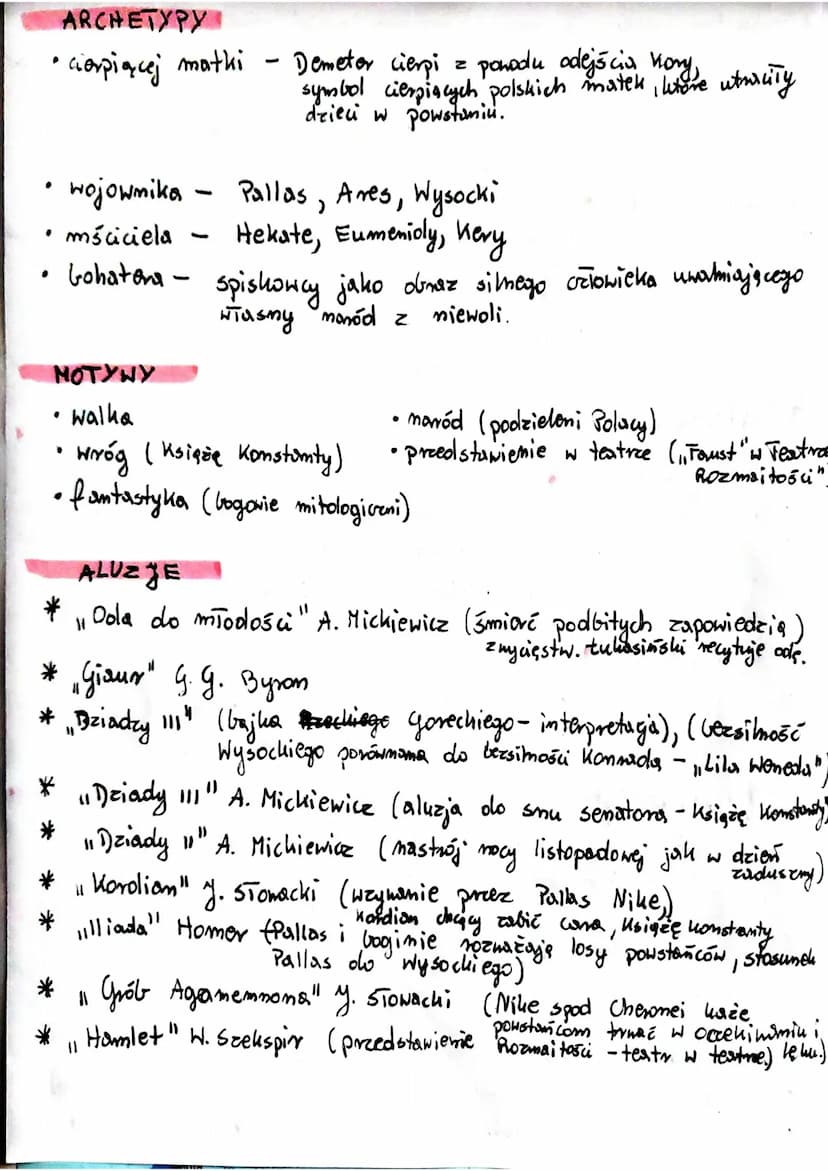 ARCHETYPY
• cierpiącej matki – Demeter cierpi z powodu odejścia Kory,
symbol cierpiących polskich matek, które utraciły
dzieci w powstaniu.
• wojownika – Pallas, Ares, Wysocki
• mściciela – Hekate, Eumenidy, Kery
• bohatera – spiskowcy jako obraz silnego człowieka uwalniającego
własny naród z niewoli.
MOTYWY
• walka
• wróg (Książę Konstanty)
• fantastyka (bogowie mitologiczni)
• naród (podzieleni Polacy)
• przedstawienie w teatrze („Faust" w Teatrze
Rozmaitości")
ALUZJE
* „Oda do młodości" A. Mickiewicz (śmierć podbitych zapowiedzią)
zwycięstw. Łukasiński recytuje odę.
* „Giaur" G. G. Byron
* „Dziady III" (bajka Goreckiego – interpretacja), (bezsilność
Wysockiego porównana do bezsilności Konrada – „Lila Weneda")
* „Dziady III" A. Mickiewicz (aluzja do snu senatora – Książę Konstanty)
* „Dziady II" A. Mickiewicz (nastrój nocy listopadowej jak w dzień
zaduszny)
* „Kordian" J. Słowacki (wzywanie przez Pallas Nike,)
Kordian chcący zabić cara, Książę Konstanty
* „Iliada" Homer (Pallas i boginie rozważają losy powstańców, stosunek
Pallas do Wysockiego)
* „Grób Agamemnona" J. Słowacki (Nike spod Cheronei każe
powstańcom trwać w oczekiwaniu i
lęku.)
* „Hamlet" W. Szekspir (przedstawienie Rozmaitości – teatr w teatrze)